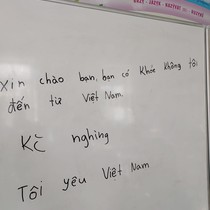 Xin chào bạn, bạn có khỏe không tôi
đến từ Việt Nam.
Kč nghing
Tôi yêu Việt Nam